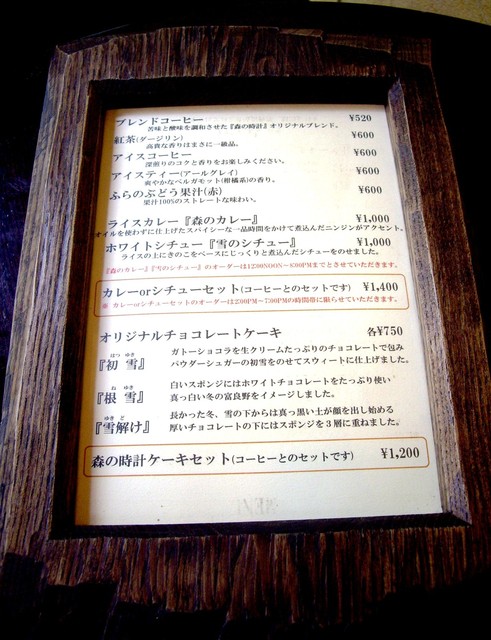 ブレンドコーヒー ¥520
苦味と酸味を調和させた『森の時計』オリジナルブレンド。
紅茶(ダージリン) ¥600
高貴な香りはまさに一級品。
アイスコーヒー ¥600
深煎りのコクと香りをお楽しみください。
アイスティー(アールグレイ) ¥600
爽やかなベルガモット(柑橘系)の香り。
ふらのぶどう果汁(赤) ¥600
果汁100%のストレートな味わい。
ライスカレー『森のカレー』 ¥1,000
オイルを使わずに仕上げたスパイシーな一品時間をかけて煮込んだニンジンがアクセント。
ホワイトシチュー『雪のシチュー』 ¥1,000
ライスの上にきのこをベースにじっくりと煮込んだシチューをのせました。
『森のカレー』『雪のシチュー』のオーダーは12:00NOON～8:00PMまでとさせていただきます。
カレーorシチューセット(コーヒーとのセットです) ¥1,400
※ カレーorシチューセットのオーダーは2:00PM～7:00PMの時間帯に限らせていただきます。
オリジナルチョコレートケーキ 各¥750
はつ ゆき
『初 雪』 ガトーショコラを生クリームたっぷりのチョコレートで包み
パウダーシュガーの初雪をのせてスウィートに仕上げました。
ね ゆき
『根 雪』 白いスポンジにはホワイトチョコレートをたっぷり使い
真っ白い冬の富良野をイメージしました。
ゆき ど
『雪解け』 長かった冬、雪の下からは真っ黒い土が顔を出し始める
厚いチョコレートの下にはスポンジを3層に重ねました。
森の時計ケーキセット(コーヒーとのセットです) ¥1,200